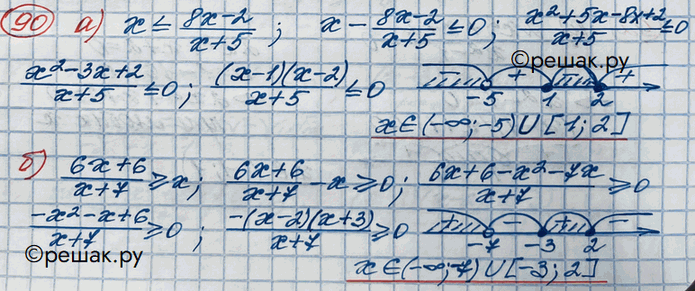 90 а) x ≤ (8x-2)/(x+5) ; x - (8x-2)/(x+5) ≤ 0 ; (x²+5x-8x+2)/(x+5) ≤ 0
©решак.ру
(x²-3x+2)/(x+5) ≤ 0 ; ((x-1)(x-2))/(x+5) ≤ 0 - + - + -5 1 2
x ∈ (-∞; -5) ∪ [1; 2]
б) (6x+6)/(x+7) ≥ x ; (6x+6)/(x+7) - x ≥ 0 ; (6x+6-x²-7x)/(x+7) ≥ 0
(-x²-x+6)/(x+7) ≥ 0 ; (-(x-2)(x+3))/(x+7) ≥ 0 + - + - -7 -3 2
©решак.ру
x ∈ (-∞; -7) ∪ [-3; 2]